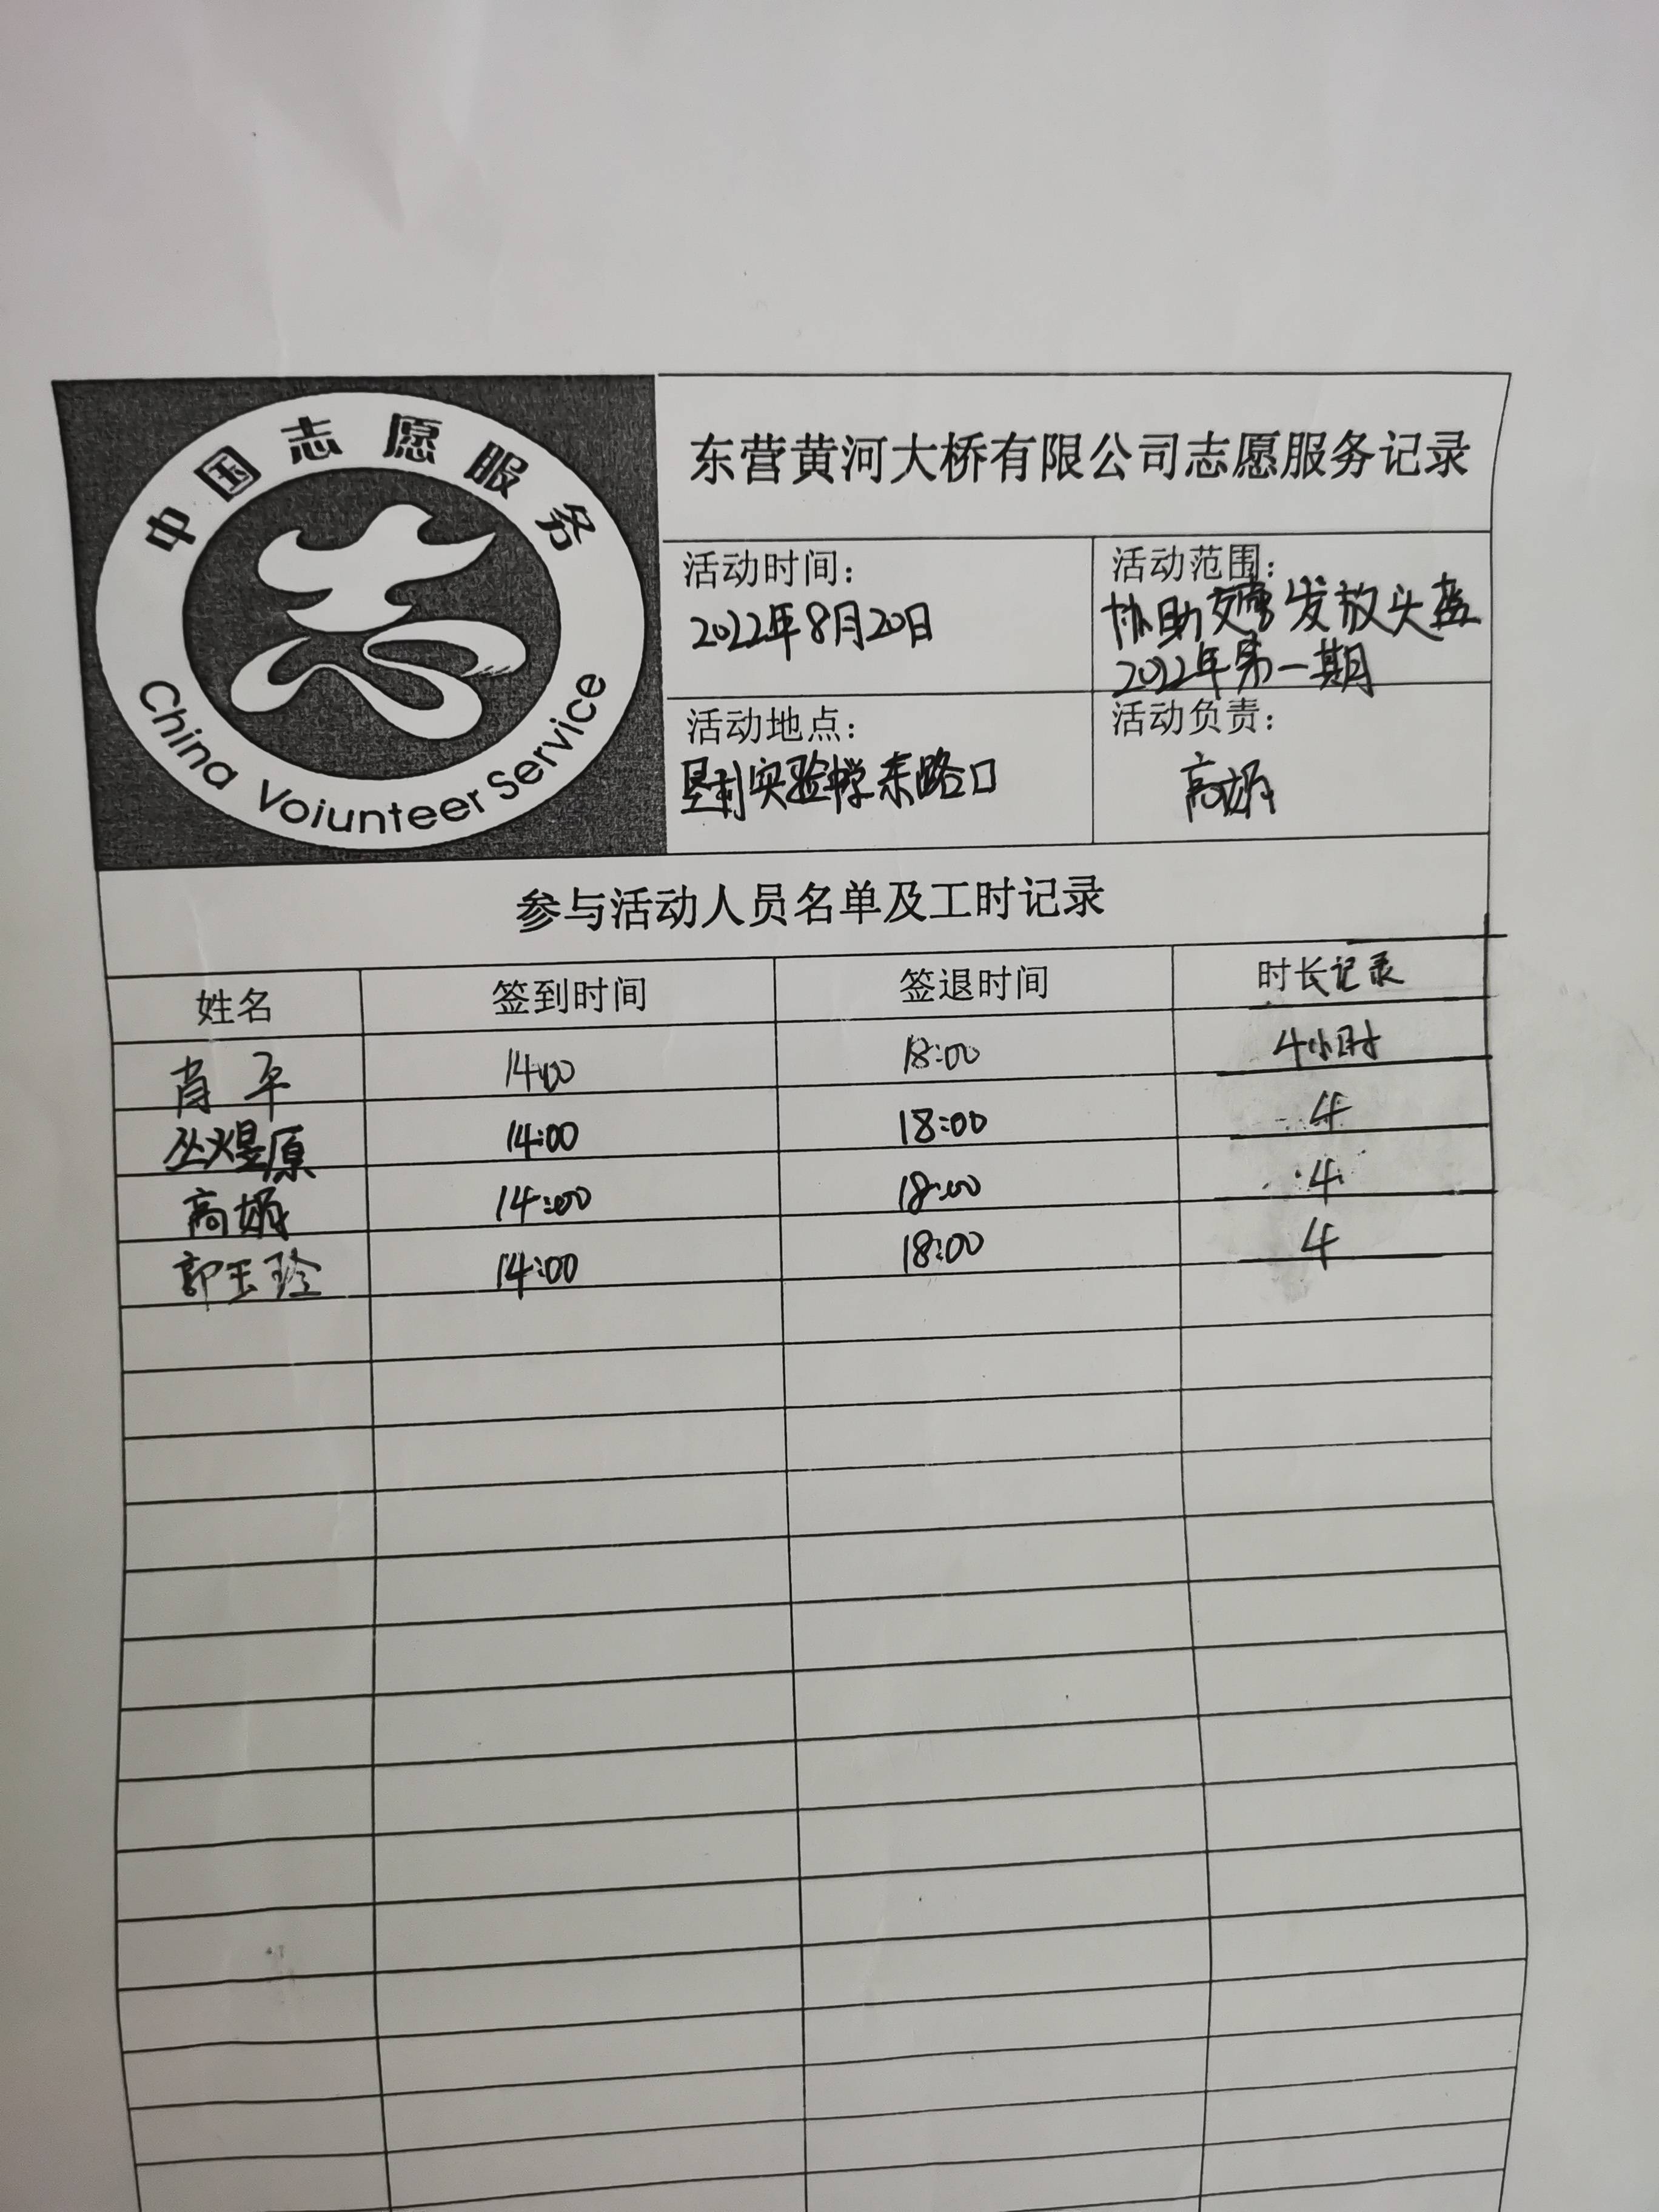 中国志愿服务
China Voiunteer Service
东营黄河大桥有限公司志愿服务记录
活动时间：
2022年8月20日
活动范围：
协助交警发放头盔
2022年第一期
活动地点：
垦利实验中学东路口
活动负责：
高娟
参与活动人员名单及工时记录
姓名 签到时间 签退时间 时长记录
肖平 14:00 18:00 4小时
丛煜原 14:00 18:00 4
高娟 14:00 18:00 4
郭玉玲 14:00 18:00 4